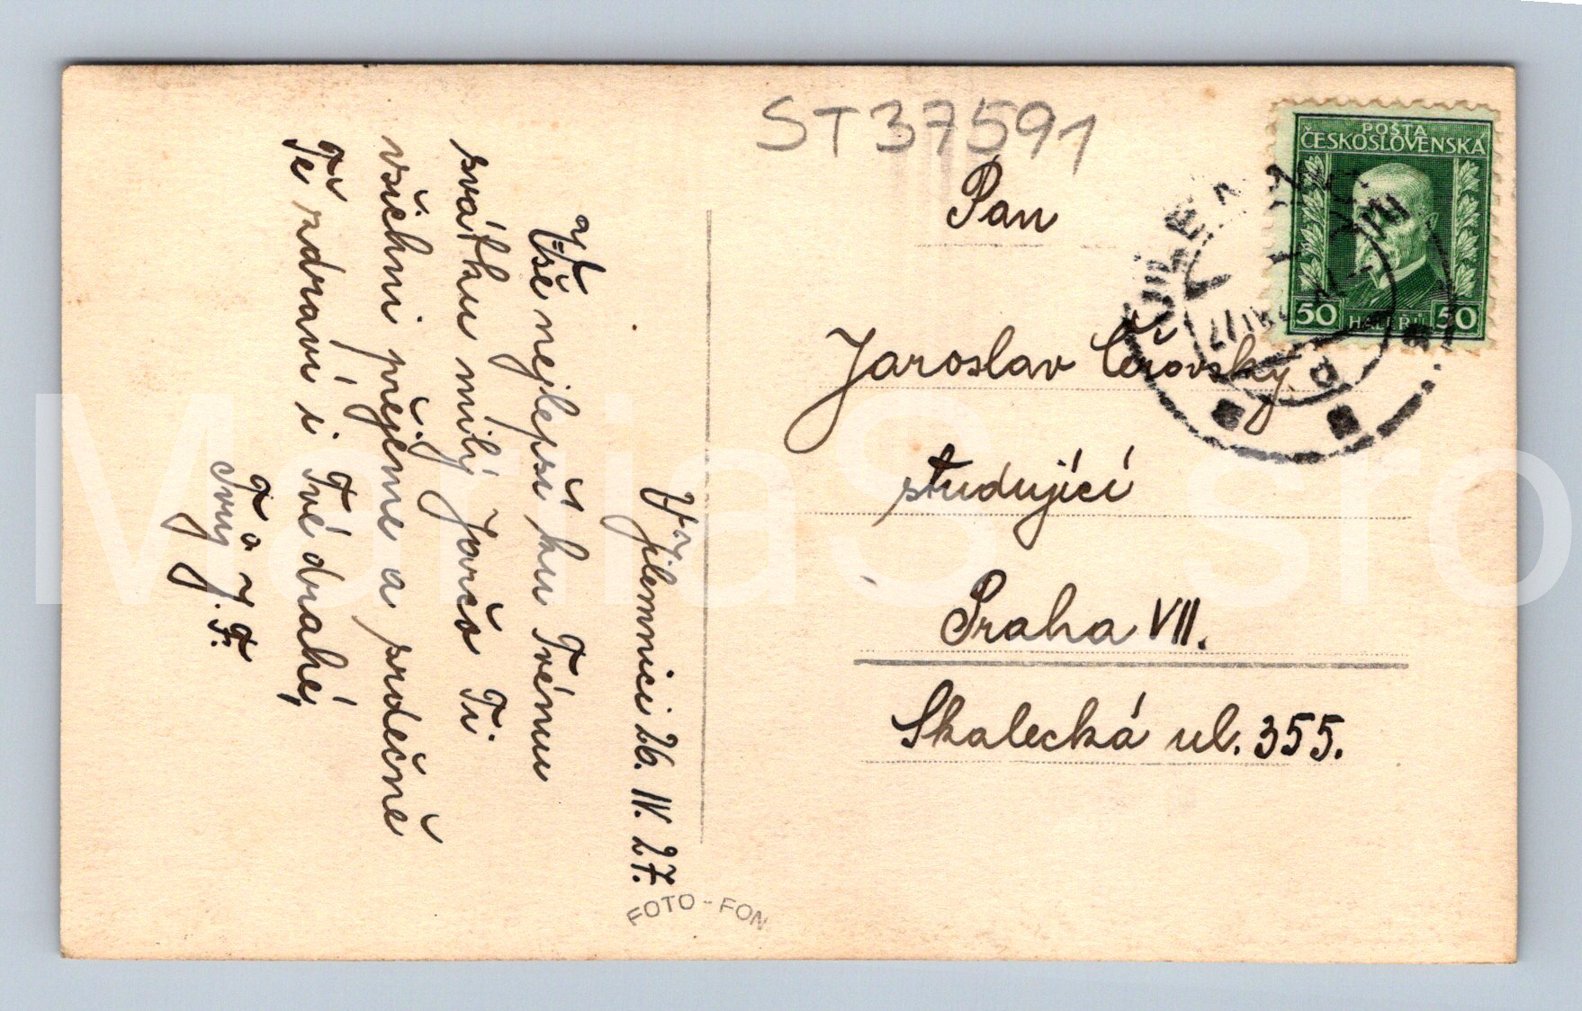 ST37591
POŠTA
ČESKOSLOVENSKÁ
50 HALÉŘŮ 50
Pan
Jaroslav Čeřovský
studující
Praha VII.
Skalecká ul. 355.
V Jilemnici 26. IV. 27.
Vše nejlepší ku Tvému
svátku milý Jarčo Ti
všichni přejeme a srdečně
Tě zdraví i Tvé drahé,
Tvůj
FOTO-FON
MariaS sro